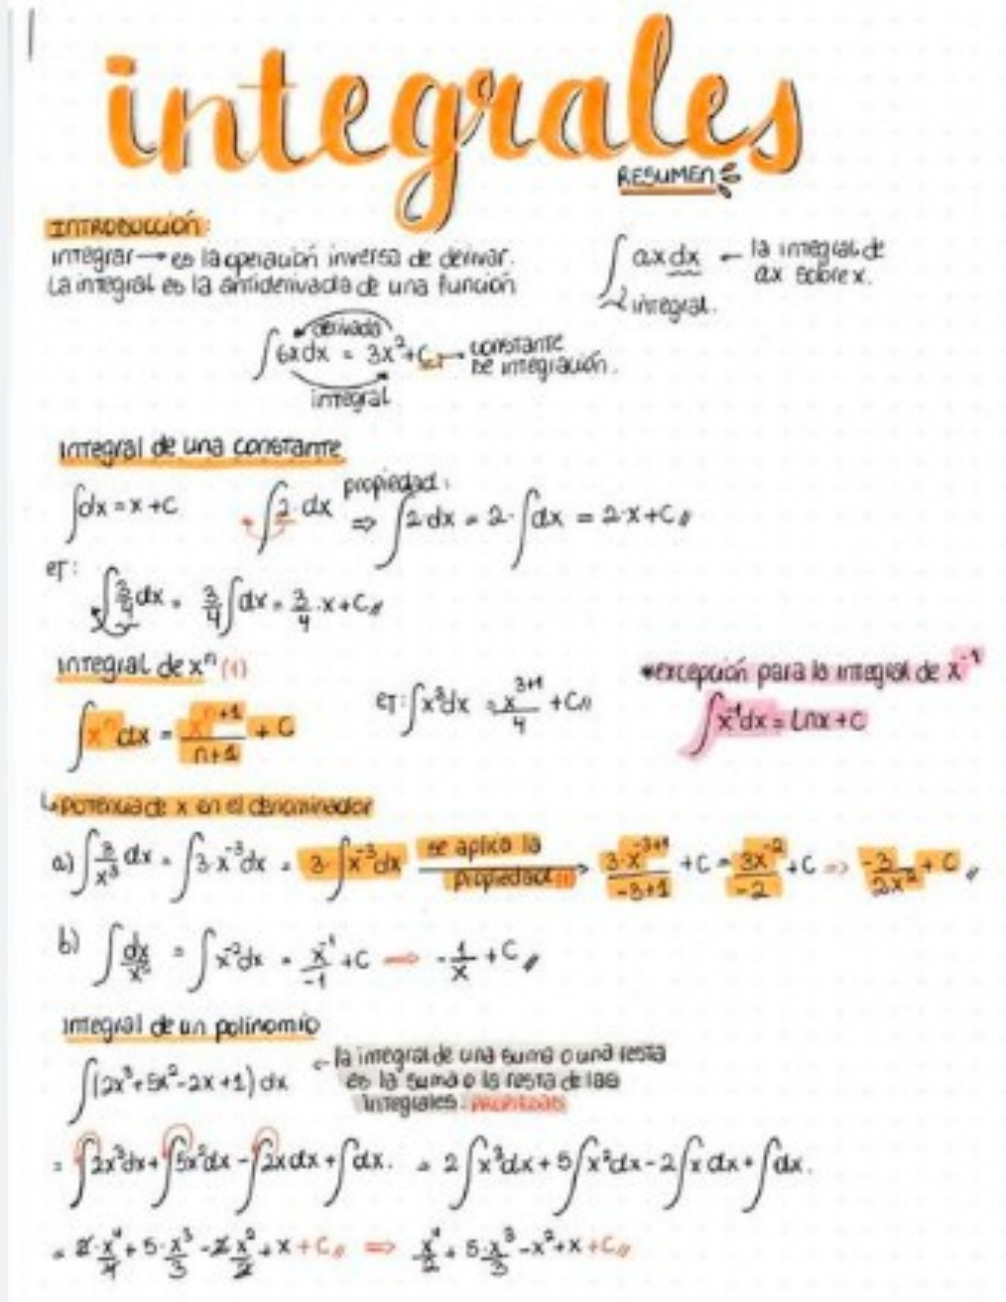 integrales
RESUMEN
INTRODUCCIÓN:
integrar → es la operación inversa de derivar.
La integral es la antiderivada de una función
∫ ax dx ← la integral de
ax sobre x.
integral.
derivada
∫6x dx = 3x² + C → constante
de integración.
integral
integral de una constante
∫dx = x + C
∫2·dx ⇒ propiedad: ∫2·dx = 2·∫dx = 2·x + C
ej: ∫3/4 dx = 3/4 ∫dx = 3/4·x + C
integral de xⁿ (1)
∫xⁿ dx = xⁿ⁺¹/n+1 + C
ej: ∫x³dx = x³⁺¹/4 + C
*excepción para la integral de x⁻¹
∫x⁻¹dx = Lnx + C
↳ potencia de x en el denominador
a) ∫3/x³ dx = ∫3·x⁻³dx = 3·∫x⁻³dx se aplica la propiedad (1) → 3·x⁻³⁺¹/-3+1 + C = 3x⁻²/-2 + C ⇒ -3/2x² + C
b) ∫dx/x² = ∫x⁻²dx = x⁻¹/-1 + C ⇒ -1/x + C
integral de un polinomio
∫(2x³+5x²-2x+1)dx
← la integral de una suma o una resta
es la suma o la resta de las
integrales. PROPIEDAD
= ∫2x³dx + ∫5x²dx - ∫2x dx + ∫dx. = 2∫x³dx + 5∫x²dx - 2∫x dx + ∫dx.
= 2·x⁴/4 + 5·x³/3 - 2x²/2 + x + C ⇒ x⁴/2 + 5·x³/3 - x² + x + C